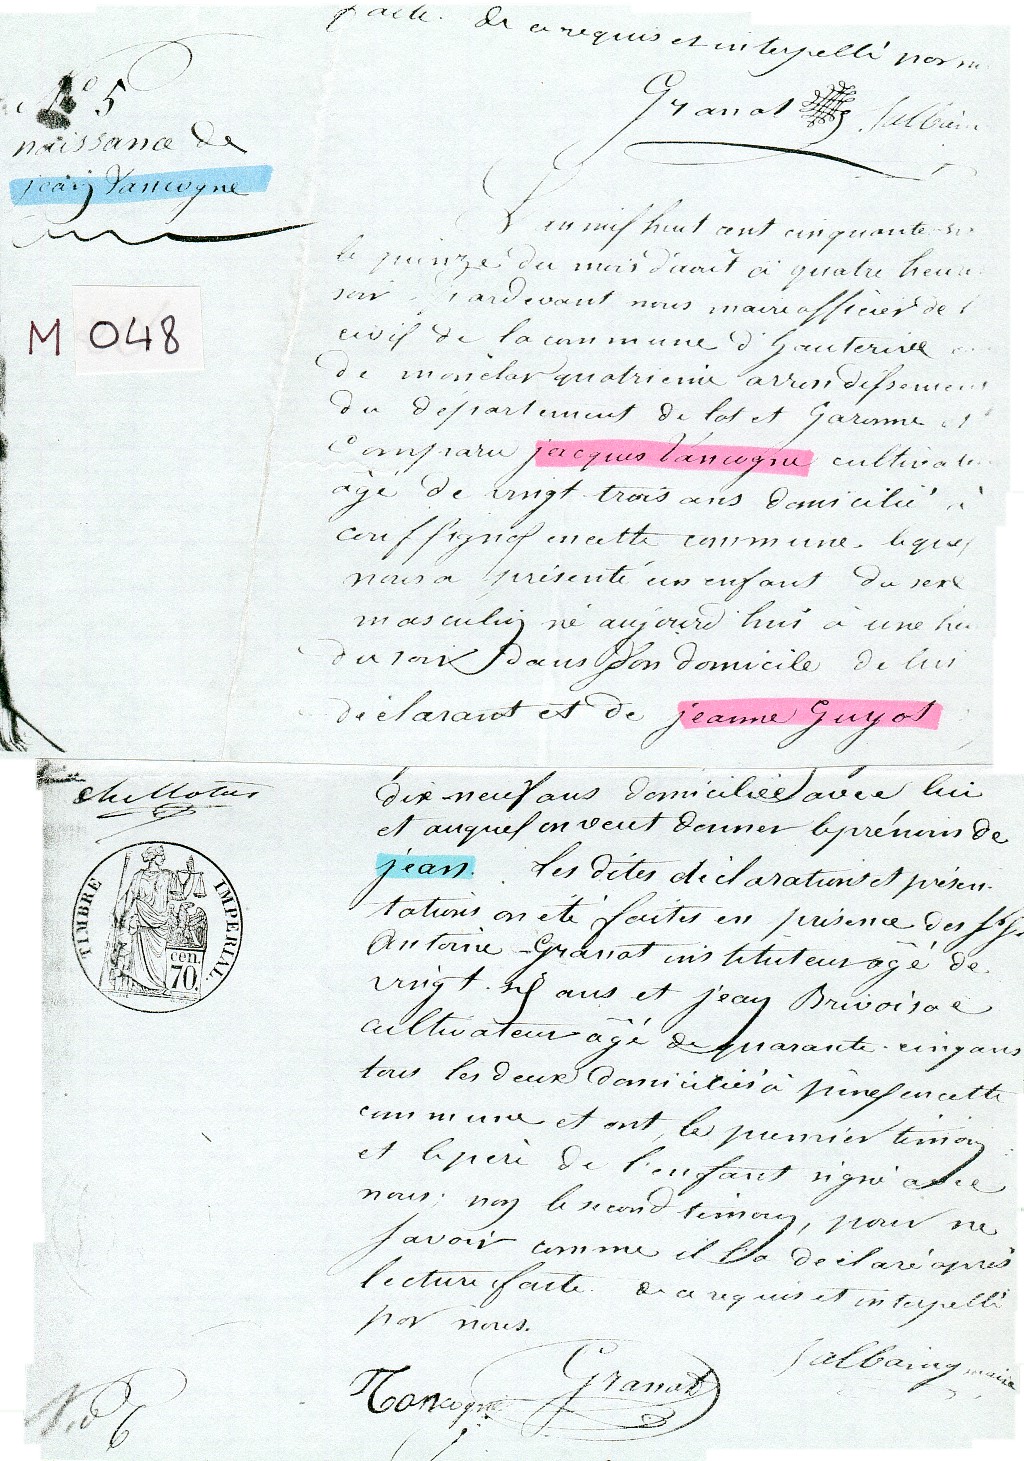 faite. De ce requis et interpellé par n
Granat Salbaing
N° 5
naissance de
jean Vancogne
M 048
L'an mil huit cent cinquante-si
le quinze du mois d'août à quatre heur
soir. Pardevant nous maire officier de l
civil de la commune d'hauterive
de monclar quatrieme arrondissement
du département de lot et Garonne est
Comparu jacques Vancogne cultivate
âgé de vingt trois ans domicilié à
couffignol en cette commune. lequel
nous a présenté un enfant du sexe
masculin né aujourd'hui à une heu
du soir dans son domicile de lui
déclarant et de jeanne Guyot
dix-neuf ans domiciliée avec lui
et auquel on veut donner le prénoms de
jean. les dites déclarations et présen-
tations on été faites en présence des
Antoine Granat instituteur âgé de
vingt ans et jean Brivoisac
cultivateur âgé de quarante-cinq ans
tous les deux domiciliés à pinel en cette
commune et ont, le premier témoin
et le père de l'enfant signé avec
nous; non le second témoin, pour ne
savoir comme il l'a déclaré après
lecture faite. de ce requis et interpellé
par nous.
Vancogne Granat Salbaing maire
TIMBRE IMPERIAL
cen.
70.
N° 6